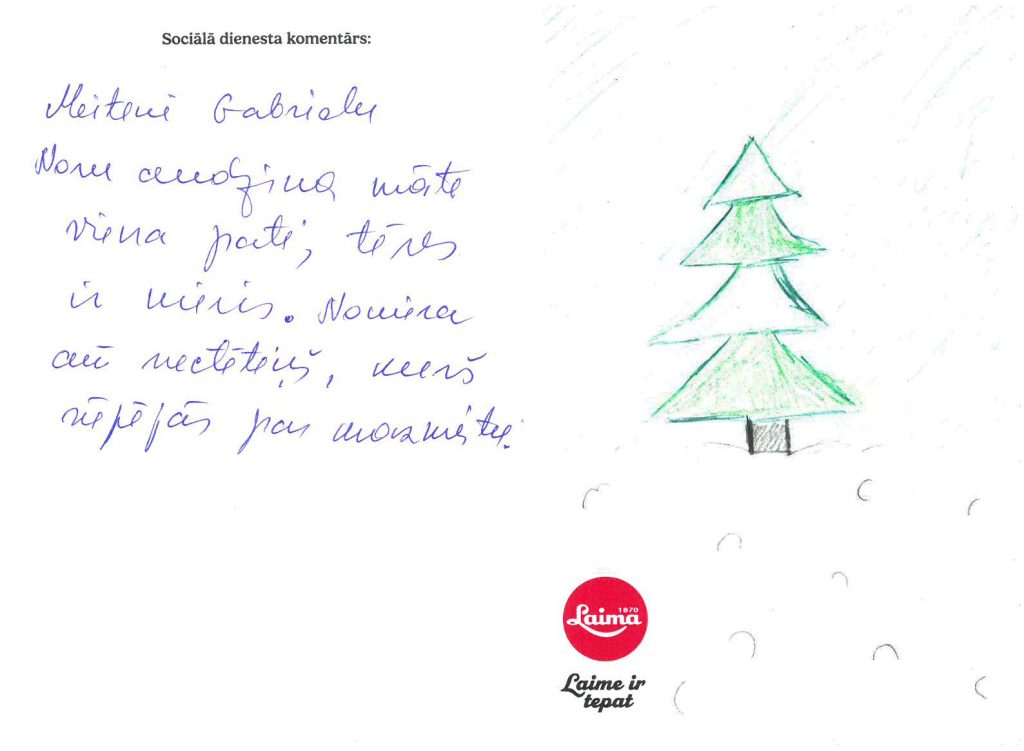 Sociālā dienesta komentārs:
Meiteni Gabrielu
Nonu audzina māte
viena pati, tēvs
ir miris. Nomira
arī vectētiņš, kurš
rūpējās par mazmeitu.
Laima
1870
Laime ir
tepat